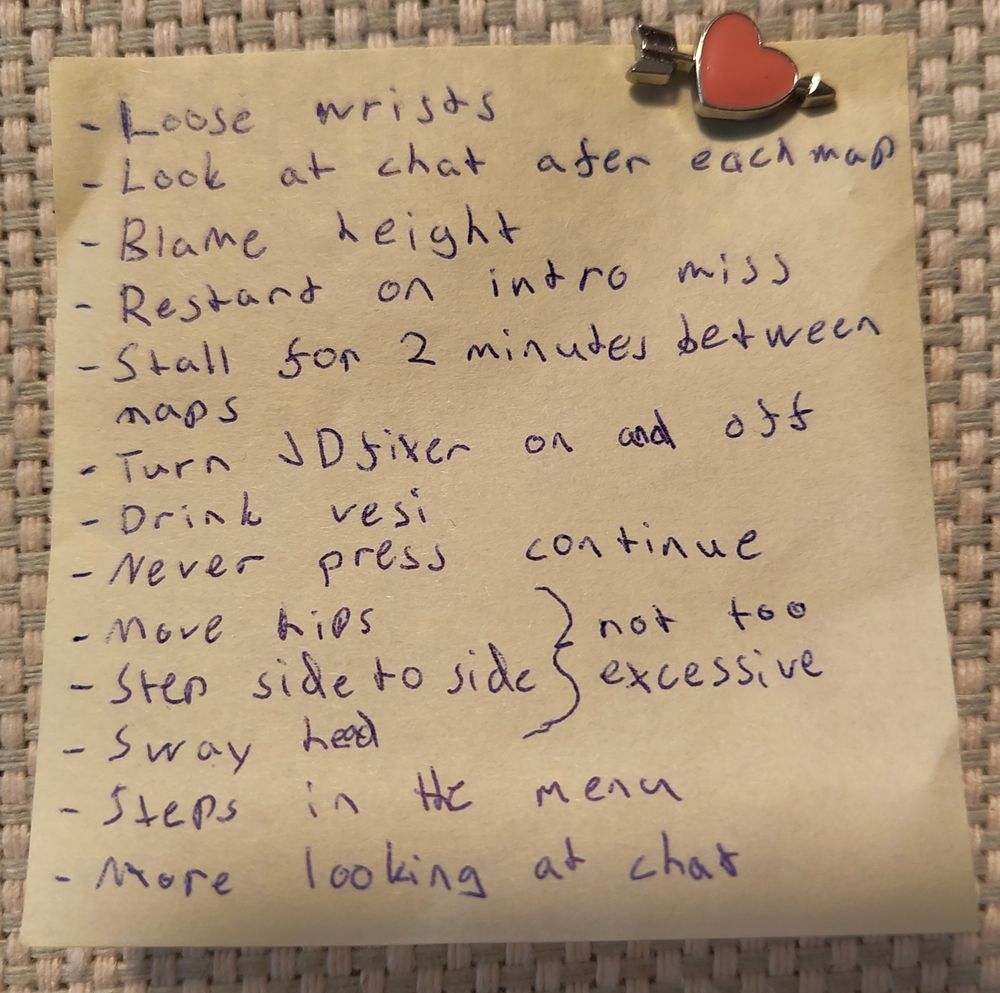 - Loose wrists
- Look at chat afer each map
- Blame height
- Restart on intro miss
- Stall for 2 minutes between
maps
- Turn JDfixer on and off
- Drink vesi
- Never press continue
- Move hips } not too
- Step side to side } excessive
- Sway head
- Steps in the menu
- More looking at chat